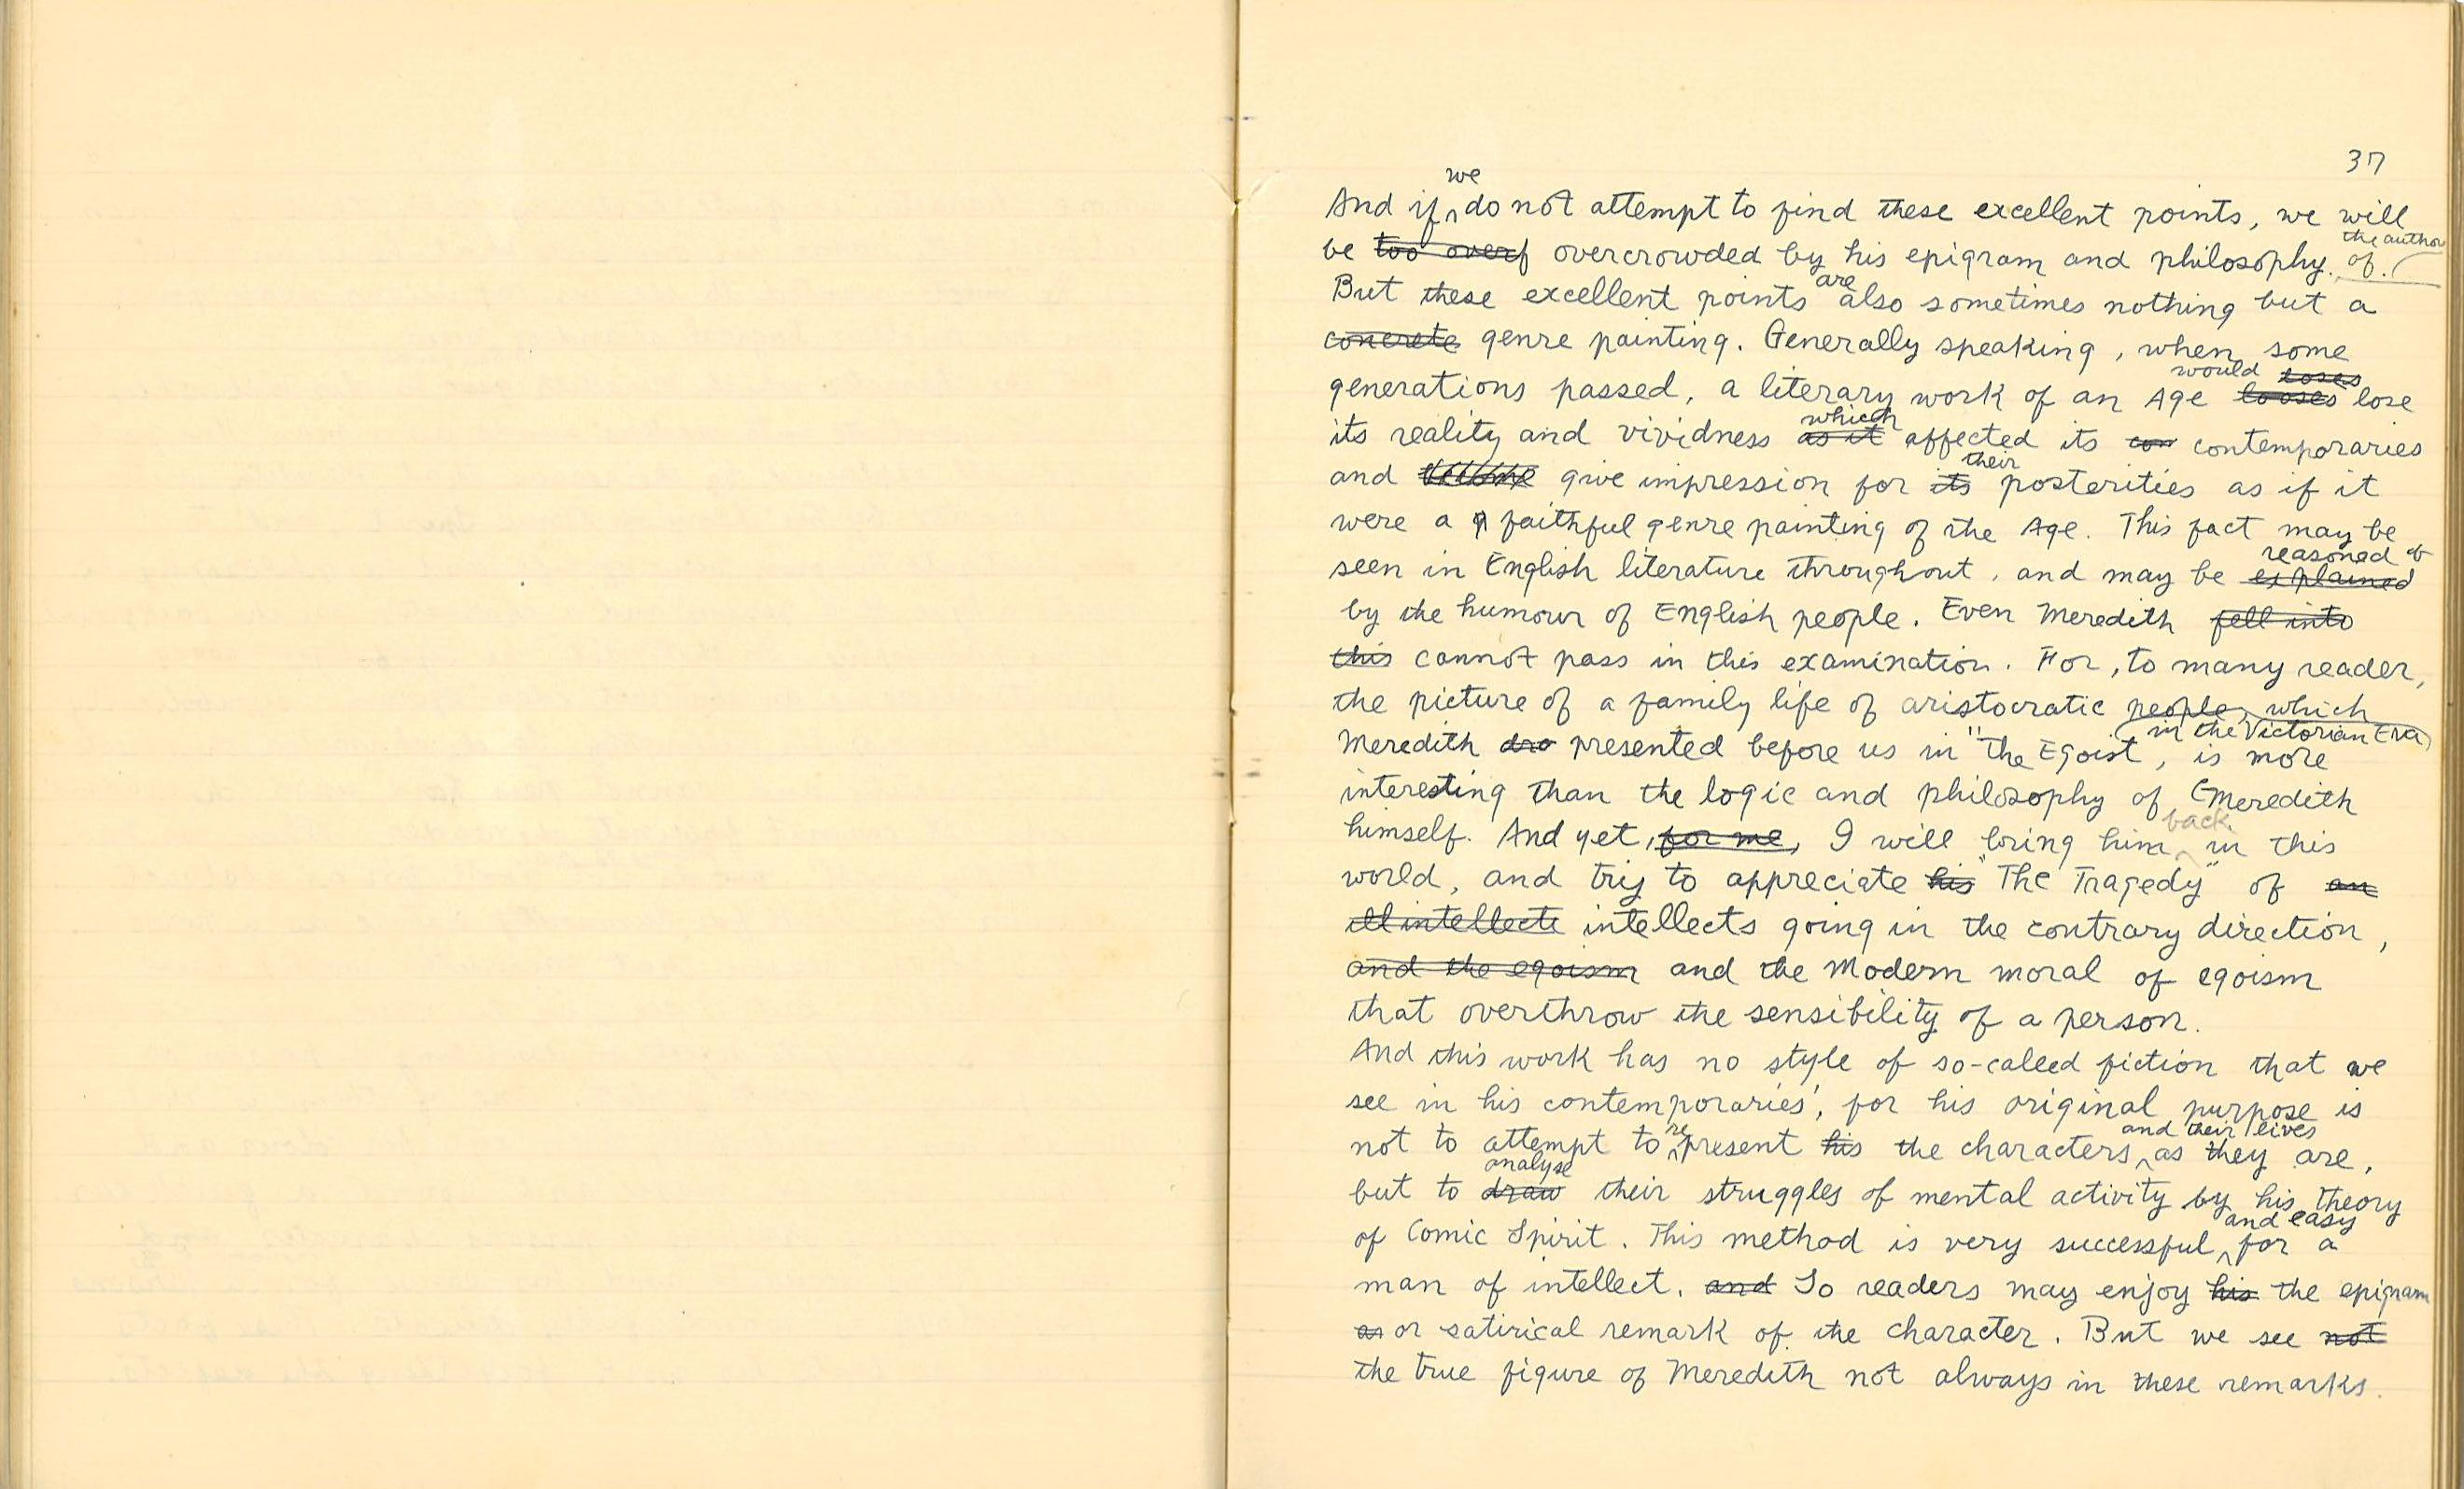 37
And if we do not attempt to find these excellent points, we will
be too overf overcrowded by his epigram and philosophy. of the author
But these excellent points are also sometimes nothing but a
concrete genre painting. Generally speaking, when some
generations passed, a literary work of an Age looses loses would lose
its reality and vividness as it which affected its con contemporaries
and give impression for its their posterities as if it
were a faithful genre painting of the Age. This fact may be
seen in English literature throughout, and may be explained reasoned
by the humour of English people. Even Meredith fell into
this cannot pass in this examination. For, to many reader,
the picture of a family life of aristocratic people, which in the Victorian Era
Meredith dra presented before us in "The Egoist", is more
interesting than the logic and philosophy of Meredith
himself. And yet, for me, I will bring him back in this
world, and try to appreciate his "The Tragedy" of an
ill intellects intellects going in the contrary direction,
and the egoism and the Modern moral of egoism
that overthrow the sensibility of a person.
And this work has no style of so-called fiction that we
see in his contemporaries', for his original purpose is
not to attempt to represent his the characters and their lives as they are,
but to draw analyse their struggles of mental activity by his theory
of Comic Spirit. This method is very successful and easy for a
man of intellect. and So readers may enjoy his the epigram
as or satirical remark of the character. But we see not
the true figure of Meredith not always in these remarks.